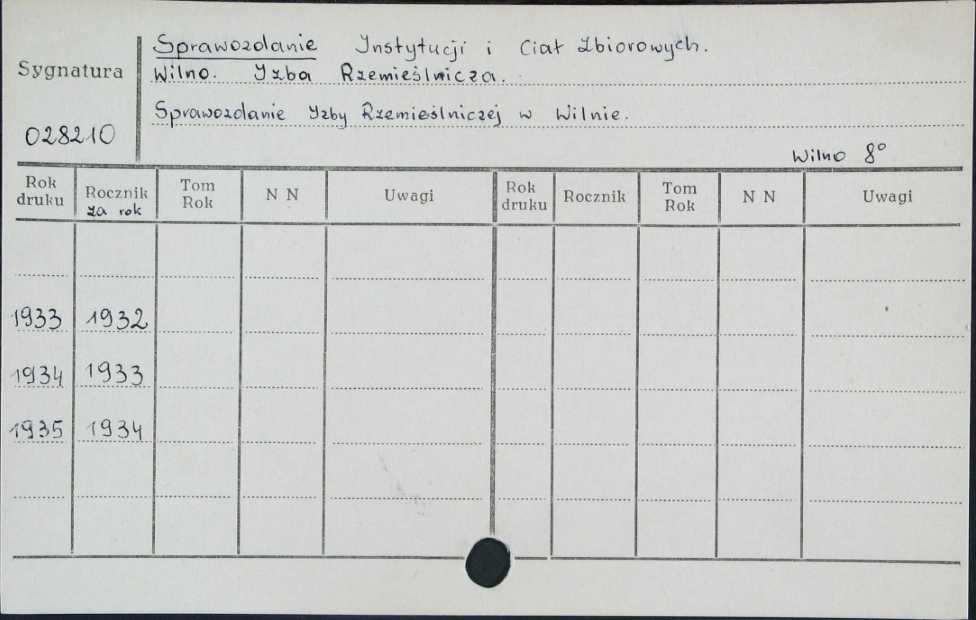 Sprawozdanie Instytucji i Ciał Zbiorowych.
Wilno. Izba Rzemieślnicza.
Sygnatura
Sprawozdanie Izby Rzemieślniczej w Wilnie.
028210
Wilno 8°
Rok druku Rocznik za rok Tom Rok N N Uwagi Rok druku Rocznik Tom Rok N N Uwagi
1933 1932
1934 1933
1935 1934